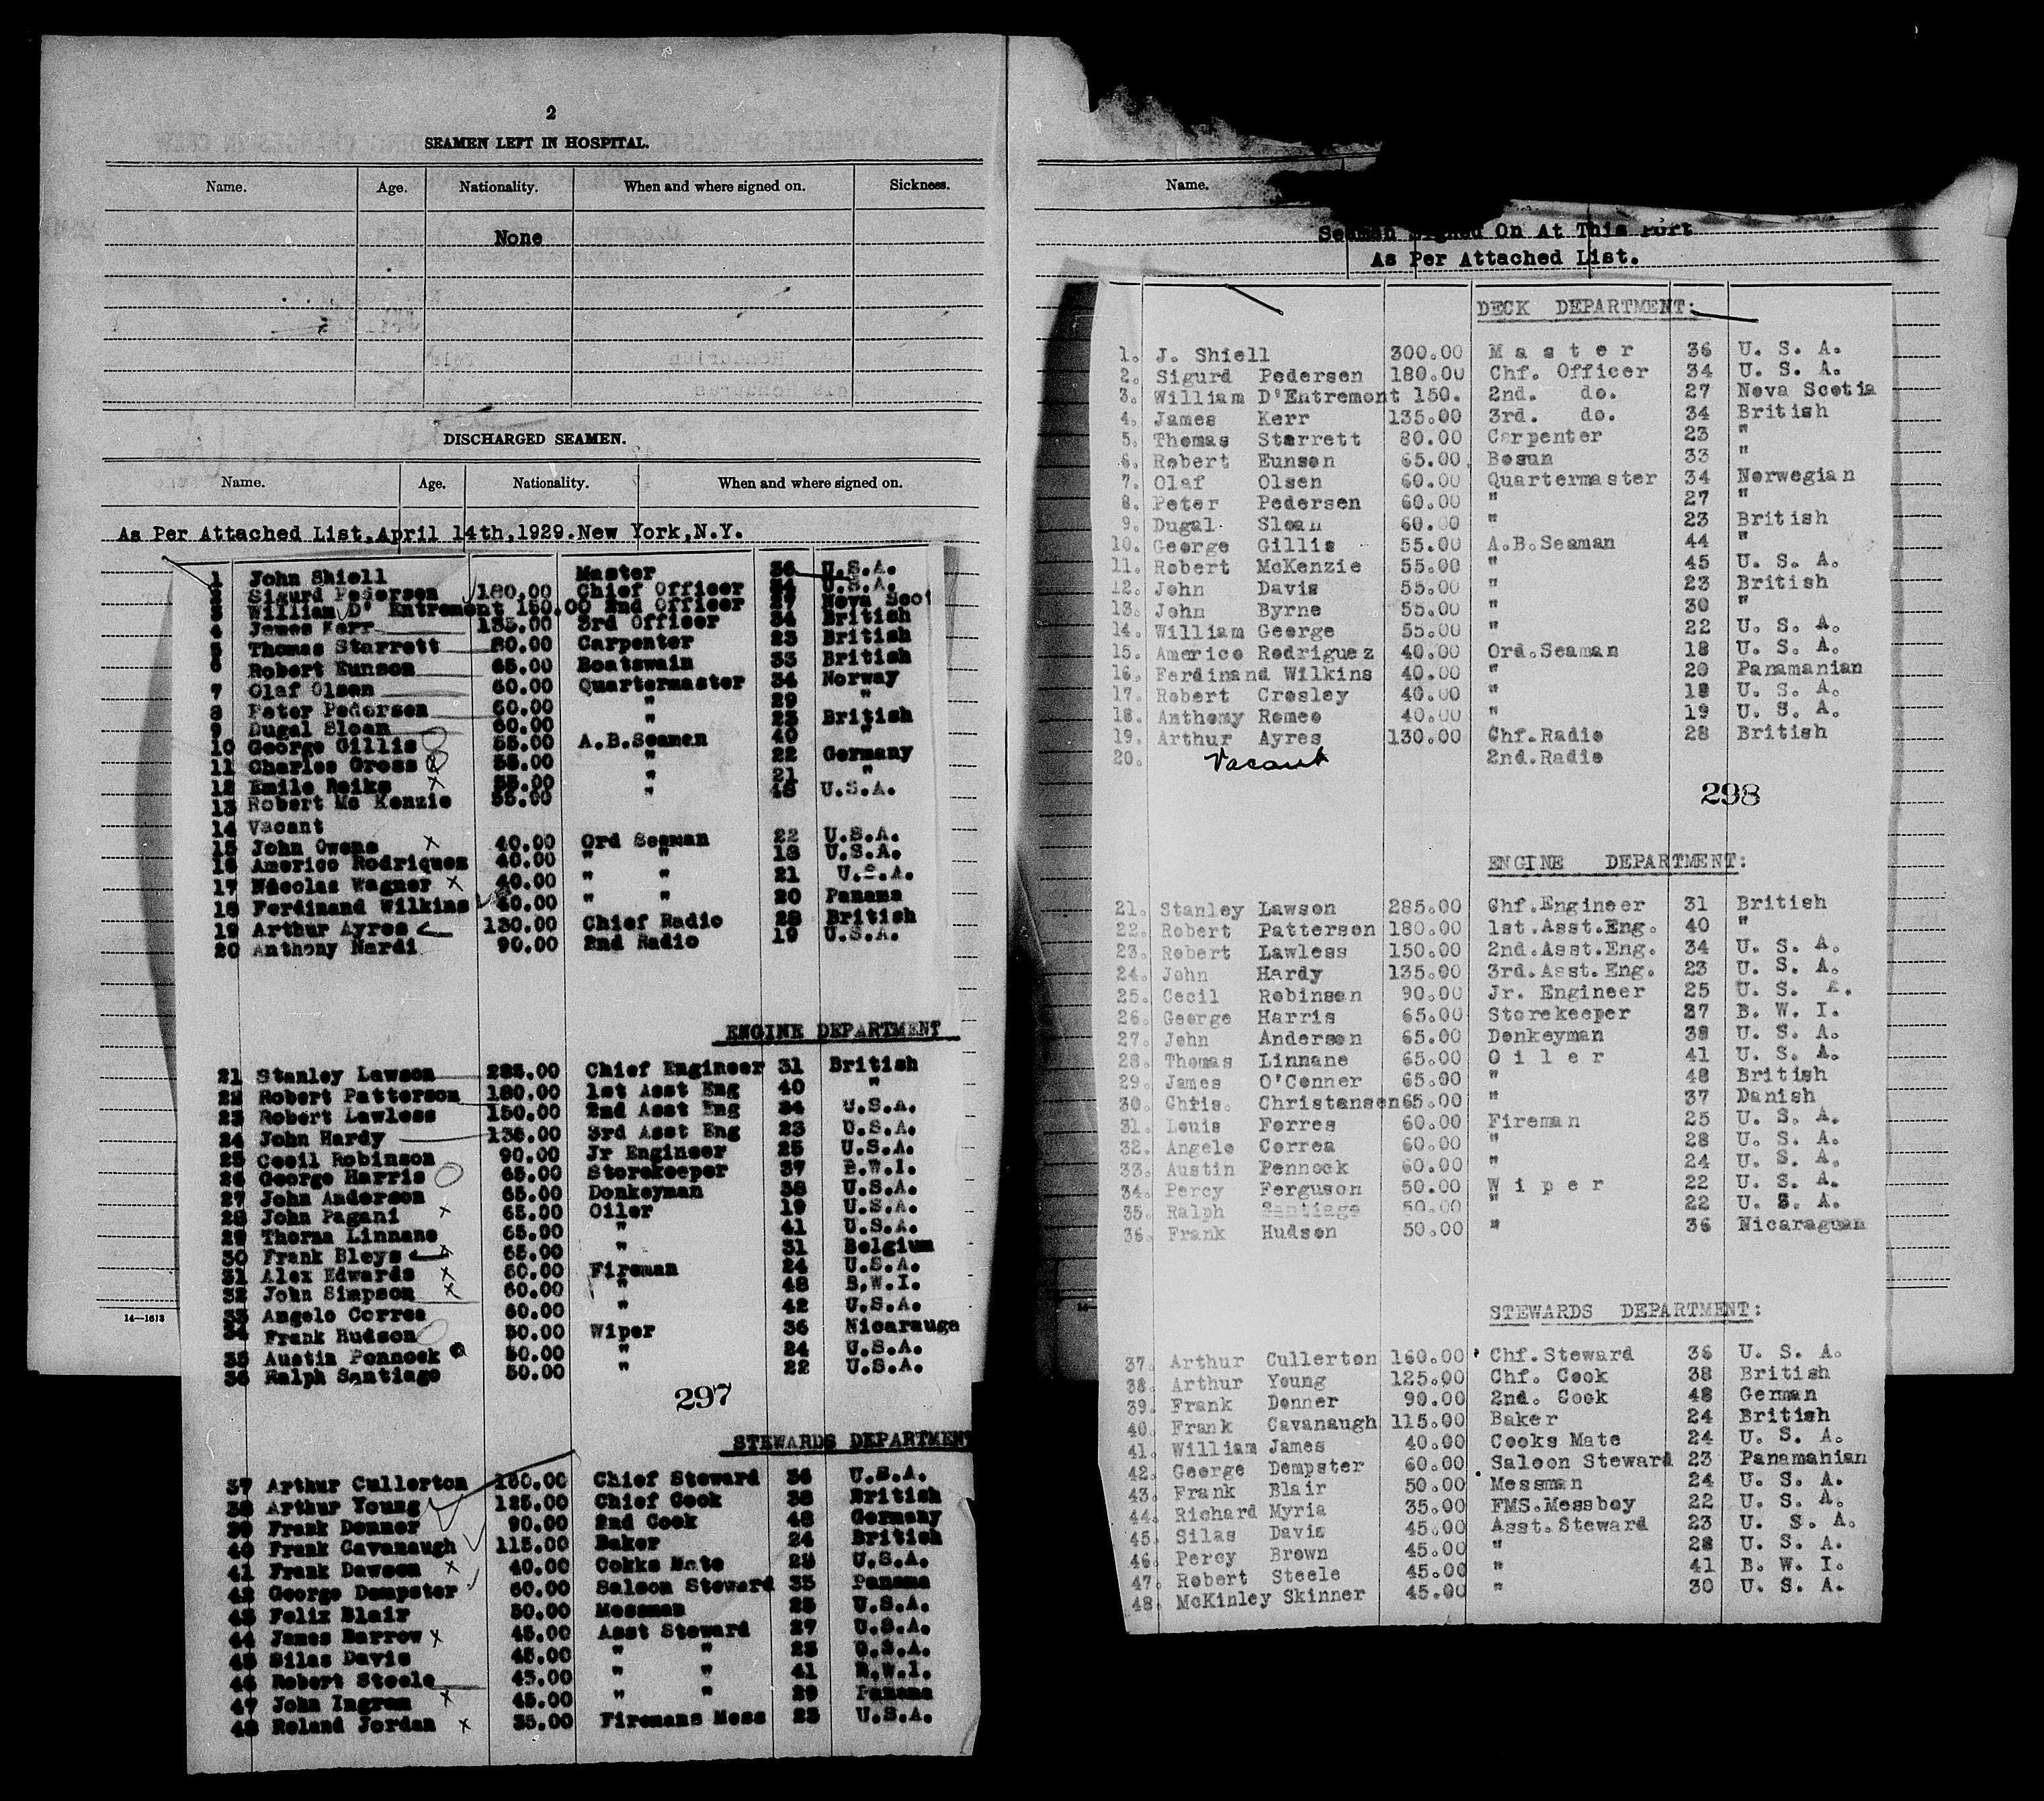 2
SEAMEN LEFT IN HOSPITAL.
Name. Age. Nationality. When and where signed on. Sickness.
None
DISCHARGED SEAMEN.
Name. Age. Nationality. When and where signed on.
As Per Attached List,April 14th,1929.New York,N.Y.
1 John Shiell Master 36 U.S.A.
2 Sigurd Pedersen 180.00 Chief Officer 34 U.S.A.
3 William D' Entrement 150.00 2nd Officer 27 Nova Scot
4 James Kerr 135.00 3rd Officer 34 British
5 Thomas Starrett 80.00 Carpenter 23 British
6 Robert Eunson 65.00 Boatswain 33 British
7 Olaf Olsen 60.00 Quartermaster 34 Norway
8 Peter Pedersen 60.00 " 29 "
9 Dugal Sloan 60.00 " 23 British
10 George Gillis 55.00 A.B.Seamen 40 "
11 Charles Gross 55.00 " 22 Germany
12 Emile Reiks 55.00 " 21 "
13 Robert Mc Kenzie 55.00 " 45 U.S.A.
14 Vacant
15 John Owens 40.00 Ord Seaman 22 U.S.A.
16 Americo Rodriques 40.00 " " 18 U.S.A.
17 Nicolas Wagner 40.00 " " 21 U.S.A.
18 Ferdinand Wilkins 40.00 " " 20 Panama
19 Arthur Ayres 130.00 Chief Radio 28 British
20 Anthony Nardi 90.00 2nd Radio 19 U.S.A.
ENGINE DEPARTMENT
21 Stanley Lawson 285.00 Chief Engineer 31 British
22 Robert Patterson 180.00 1st Asst Eng 40 "
23 Robert Lawless 150.00 2nd Asst Eng 34 U.S.A.
24 John Hardy 135.00 3rd Asst Eng 23 U.S.A.
25 Cecil Robinson 90.00 Jr Engineer 25 U.S.A.
26 George Harris 65.00 Storekeeper 37 B.W.I.
27 John Anderson 65.00 Donkeyman 38 U.S.A.
28 John Pagani 65.00 Oiler 19 U.S.A.
29 Thorma Linnane 65.00 " 41 U.S.A.
30 Frank Bleys 65.00 " 31 Belgium
31 Alex Edwards 60.00 Fireman 24 U.S.A.
32 John Simpson 60.00 " 48 B.W.I.
33 Angelo Correa 60.00 " 42 U.S.A.
34 Frank Hudson 50.00 Wiper 36 Nicarauga
35 Austin Pennock 50.00 " 24 U.S.A.
36 Ralph Santiago 50.00 " 22 U.S.A.
297
STEWARDS DEPARTMENT
37 Arthur Cullerton 160.00 Chief Steward 36 U.S.A.
38 Arthur Young 125.00 Chief Cook 38 British
39 Frank Donner 90.00 2nd Cook 48 Germany
40 Frank Cavanaugh 115.00 Baker 24 British
41 Frank Dawson 40.00 Cokks Mate 28 U.S.A.
42 George Dempster 60.00 Saloon Steward 35 Panama
43 Felix Blair 50.00 Messman 25 U.S.A.
44 James Barrow 45.00 Asst Steward 27 U.S.A.
45 Silas Davis 45.00 " " 23 U.S.A.
46 Robert Steele 45.00 " " 41 B.W.I.
47 John Ingram 45.00 " " 29 Panama
48 Roland Jordan 35.00 Firemans Mess 23 U.S.A.
14—1613
Name.
Seaman Signed On At This Port
As Per Attached List.
DECK DEPARTMENT:
1. J. Shiell 300.00 Master 36 U. S. A.
2. Sigurd Pedersen 180.00 Chf. Officer 34 U. S. A.
3. William D'Entremont 150. 2nd. do. 27 Nova Scotia
4. James Kerr 135.00 3rd. do. 34 British
5. Thomas Starrett 80.00 Carpenter 23 "
6. Robert Eunson 65.00 Bosun 33 "
7. Olaf Olsen 60.00 Quartermaster 34 Norwegian
8. Peter Pedersen 60.00 " 27 "
9. Dugal Sloan 60.00 " 23 British
10. George Gillis 55.00 A.B.Seaman 44 "
11. Robert McKenzie 55.00 " 45 U. S. A.
12. John Davis 55.00 " 23 British
13. John Byrne 55.00 " 30 "
14. William George 55.00 " 22 U. S. A.
15. Americo Rodriguez 40.00 Ord.Seaman 18 U. S. A.
16. Ferdinand Wilkins 40.00 " 20 Panamanian
17. Robert Crosley 40.00 " 18 U. S. A.
18. Anthony Romeo 40.00 " 19 U. S. A.
19. Arthur Ayres 130.00 Chf.Radio 28 British
20. Vacant 2nd.Radio
298
ENGINE DEPARTMENT:
21. Stanley Lawson 285.00 Chf.Engineer 31 British
22. Robert Patterson 180.00 1st.Asst.Eng. 40 "
23. Robert Lawless 150.00 2nd.Asst.Eng. 34 U. S. A.
24. John Hardy 135.00 3rd.Asst.Eng. 23 U. S. A.
25. Cecil Robinson 90.00 Jr. Engineer 25 U. S. A.
26. George Harris 65.00 Storekeeper 37 B. W. I.
27. John Anderson 65.00 Donkeyman 38 U. S. A.
28. Thomas Linnane 65.00 Oiler 41 U. S. A.
29. James O'Conner 65.00 " 48 British
30. Chris. Christensen 65.00 " 37 Danish
31. Louis Forres 60.00 Fireman 25 U. S. A.
32. Angelo Correa 60.00 " 28 U. S. A.
33. Austin Pennock 60.00 " 24 U. S. A.
34. Percy Ferguson 50.00 Wiper 22 U. S. A.
35. Ralph Santiago 50.00 " 22 U. S. A.
36. Frank Hudson 50.00 " 36 Nicaraguan
STEWARDS DEPARTMENT:
37. Arthur Cullerton 160.00 Chf.Steward 36 U. S. A.
38. Arthur Young 125.00 Chf. Cook 38 British
39. Frank Donner 90.00 2nd. Cook 48 German
40. Frank Cavanaugh 115.00 Baker 24 British
41. William James 40.00 Cooks Mate 24 U. S. A.
42. George Dempster 60.00 Saloon Steward 23 Panamahian
43. Frank Blair 50.00 Messman 24 U. S. A.
44. Richard Myria 35.00 FMS.Messboy 22 U. S. A.
45. Silas Davis 45.00 Asst.Steward 23 U. S. A.
46. Percy Brown 45.00 " 28 U. S. A.
47. Robert Steele 45.00 " 41 B. W. I.
48. McKinley Skinner 45.00 " 30 U. S. A.